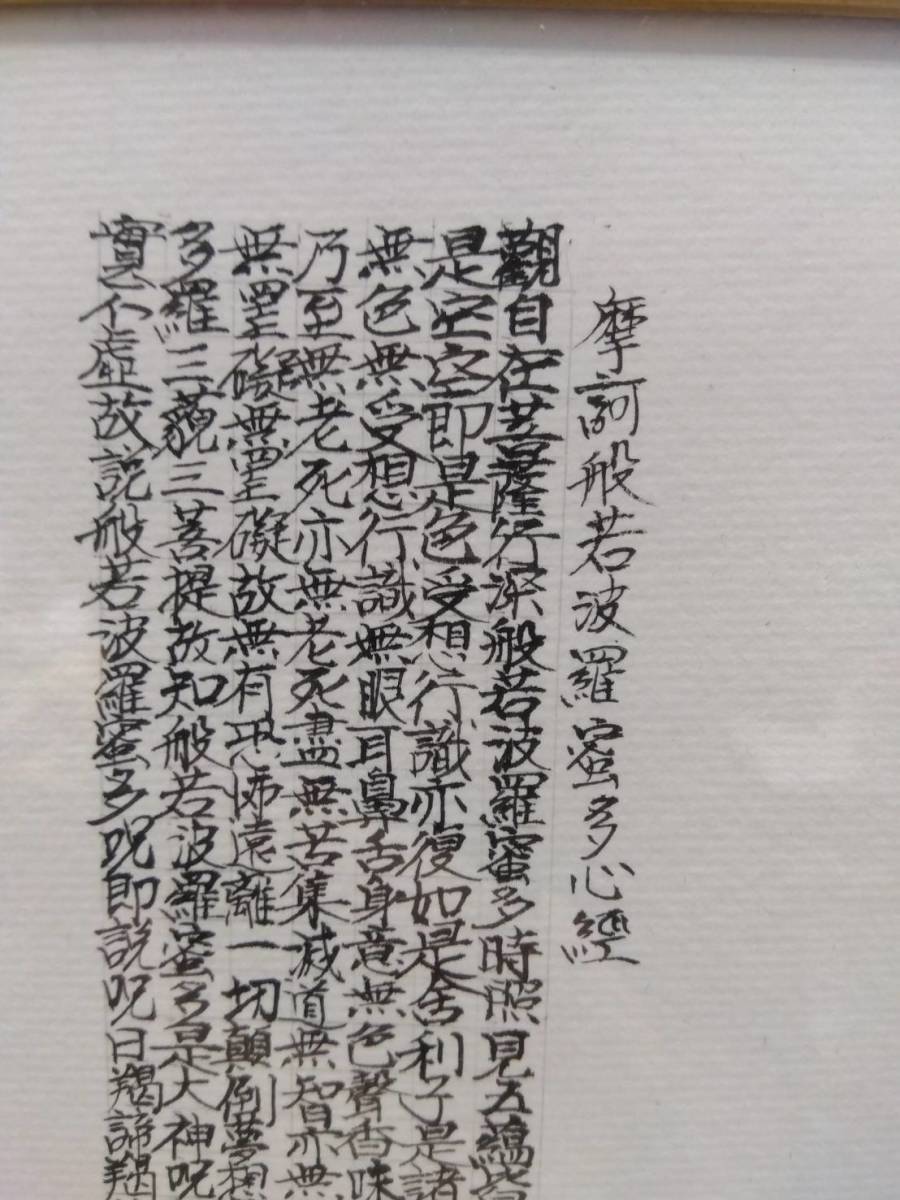 摩訶般若波羅蜜多心經
觀自在菩薩行深般若波羅蜜多時照見五蘊皆
是空空即是色受想行識亦復如是舍利子是諸
無色無受想行識無眼耳鼻舌身意無色聲香味
乃至無老死亦無老死盡無苦集滅道無智亦無
無罣礙無罣礙故無有恐怖遠離一切顛倒夢想
多羅三藐三菩提故知般若波羅蜜多是大神呪
實不虛故說般若波羅蜜多呪即說呪曰羯諦羯